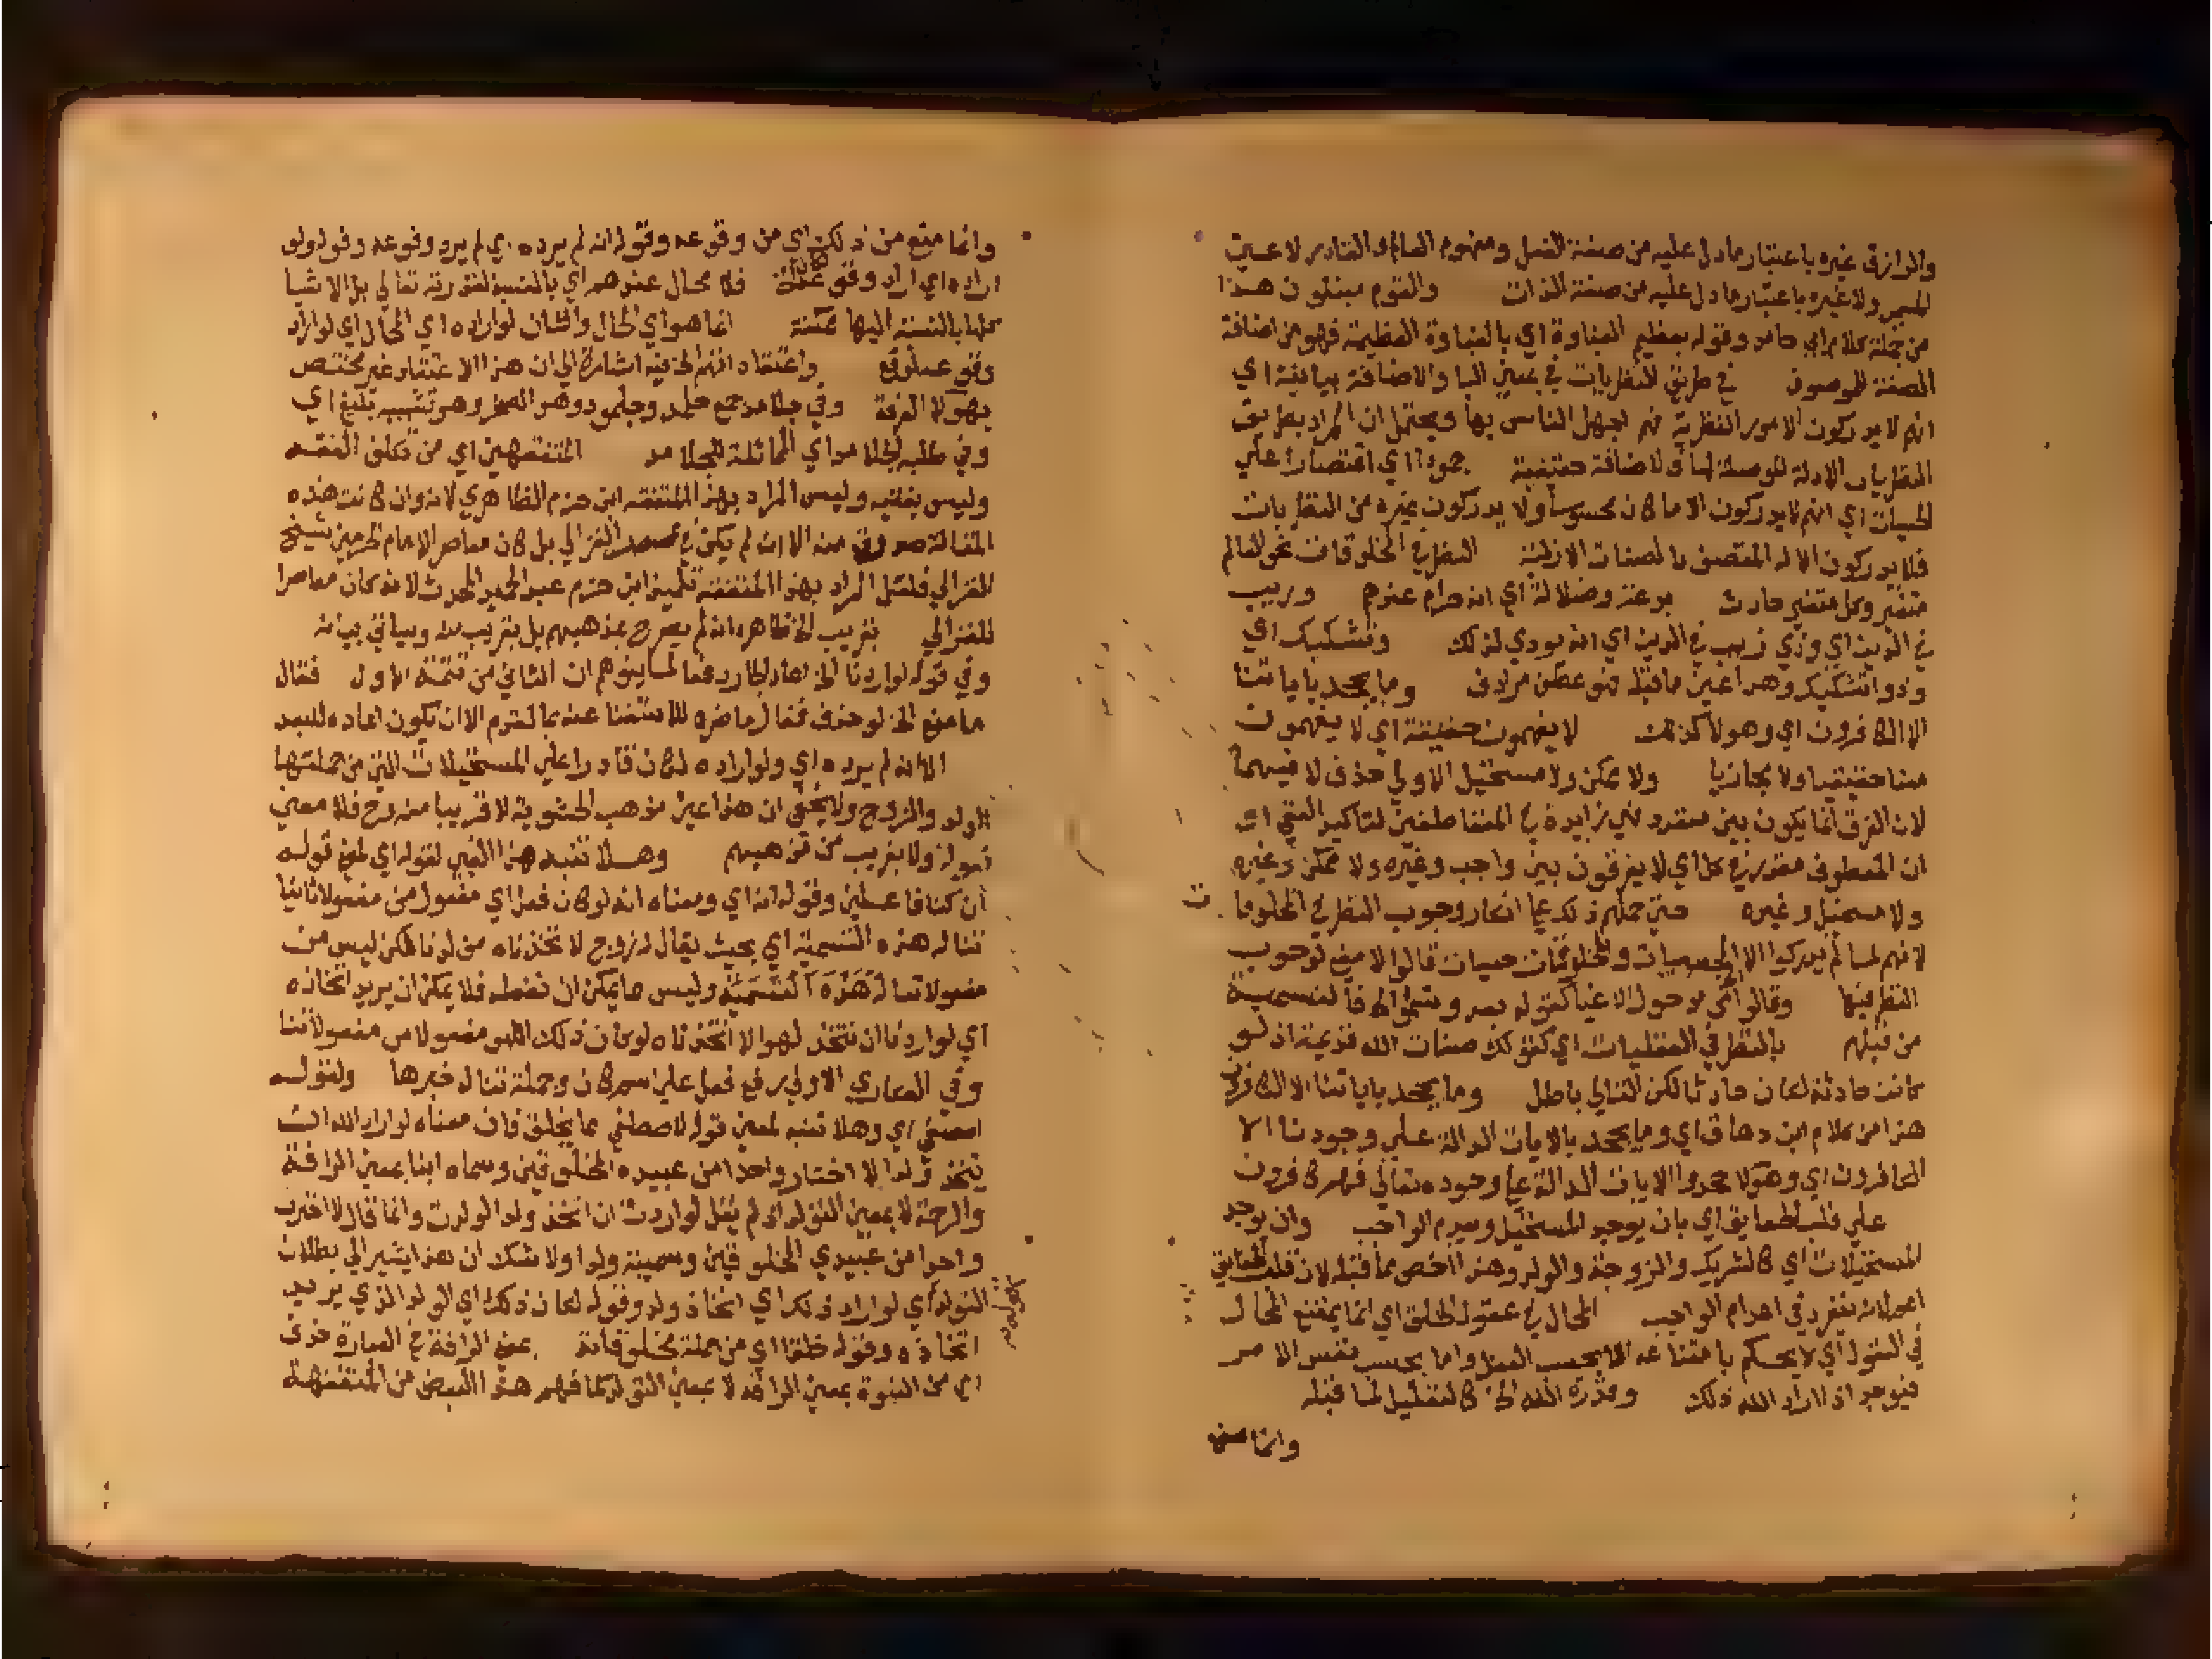 والرازق غيره باعتبار ما دل عليه من صفة الفعل ومفهوم العالم والقادر لا عين
المسمى ولا غيره باعتبار ما دل عليه من صفة الذات والقوم مبتلون هذا
من جملة كلام ابي حامد وقوله بعظيم الغباوة اي بالغباوة العظيمة فهو من اضافة
الصفة للموصوف في طريق النظريات في بمعنى البا والاضافة بيانية اي
انهم لا يدركون الامور النظرية فهم اجهل الناس بها ويحتمل ان المراد بطريق
النظريات الادلة الموصلة لها والاضافة حقيقية جمودا اي اقتصارا علي
الحسيات اي انهم لا يدركون الا ما كان محسوسا ولا يدركون غيره من النظريات
فلا يدركون الاله المتصف بالصفات الازلية النظر في المخلوقات نحو العالم
متغير وكل متغير حادث بدعة وضلالة اي انه حرام عندهم وريب
في الدين اي وذي ريب في الدين اي انه يودي لذلك وتشكيك اي
وذو تشكيك وهذا عين ما قبله فهو عطف مرادف وما يجحد باياتنا
الا الكافرون اي وهولا كذلك لا يفهمون حقيقة اي لا يفهمون
معنا حقيقيا ولا مجازيا ولا ممكن ولا مستحيل الاولي حذف لا فيهما
لان الفرق انما يكون بين متعدد فهي زايدة في المتعاطفين لتاكيد النفي او
ان المعطوف مقدر في كل اي لا يفرقون بين واجب وغيره ولا ممكن وغيره
ولا مستحيل وغيره حتى حملهم ذلك علي انكار وجوب النظر في المخلوقا
لانهم لما لم يدركوا الا الحسيات والمخلوقات حسيات قالوا لا معنى لوجوب
النظر فيها وقالوا
من قبلهم بالنظر في العقليات اي كقولك صفات الله قديمة اذ لو
كانت حادثة لكان حادثا لكن التالي باطل وما يجحد باياتنا الا الكافرون
هذا من كلام ابن دهاق اي وما يجحد بالايات الدالة علي وجودنا الا
الكافرون اي وهولا جحدوا الايات الدالة علي وجوده تعالي فهم كافرون
علي قلب الحقايق اي بان يوجد المستحيل ويعدم الواجب وان يوجد
المستحيلات اي كالشريك والزوجة والولد وهذا اخص مما قبله لان قلب الحقايق
ينفرد في اعدام الواجب المحال في عقول الخلق اي انما يمتنع المحال
في العقول اي لا يحكم بامتناعه الا بحسب العقل واما بحسب نفس الامر
فيوجد اذا اراد الله ذلك وقدرة الله الخ كالتعليل لما قبله
وانما منع
وانما منع من ذلك اي من وقوعه وقوله انه لم يرده اي لم يرد وقوعه وقوله ولو
اراده اي اراد وقوعه لكان فلا محال عندهم اي بالنسبة لقدرته تعالي بل الاشيا
كلها بالنسبة اليها ممكنة انما هو اي الحال والشان لو اراده اي المحال اي لو اراد
وقوعه لوقع واعتقاد انهم الخ فيه اشارة الي ان هذا الاعتقاد غير مختص
بهولا الفرقة وفي جلامد جمع جلمد وجلمود وهو الصخر وهو تشبيه بليغ اي
وفي طلبه كجلامد اي المماثلة لجلامد المتفقهين اي من تكلف الفقه
وليس بفقيه وليس المراد بهذا المتفقه ابن حزم الظاهري لانه وان كانت هذه
المقالة صدرت منه الا انه لم يكن في عصر الغزالي بل كان معاصرا لامام الحرمين شيخ
الغزالي فلعل المراد بهذا المتفقه تلميذ ابن حزم عبد الحميد المحدث لانه كان معاصرا
للغزالي بقريب الخ ظاهره انه لم يصرح بمذهبهم بل بقريب منه وسياتي بيانه
وفي قوله لو اردنا الخ اعاد الجار دفعا لما يتوهم ان الثاني من تتمة الاول فقال
ما معنى الخ لو حذف فقال ما ضره للاستغنا عنه بما تقدم الا ان يكون اعاده للبعد
الا انه لم يرده اي ولو اراده لكان قادرا علي المستحيلات التي من جملتها
الولد والزوج ولا يخفى ان هذا عين مذهب الحشوية لا قريبا منه وح فلا معني
لقوله ولا بقريب من مذهبهم وهلا تنبه هذا الغبي لقوله اي لمعنى قوله
ان كنا فاعلين وقوله انه اي ومعناه انه لو كان فعل اي مفعول من مفعولاتنا
تناله هذه التسمية اي بحيث يقال له زوج لاتخذناه من لدنا لكن ليس من
مفعولاتنا له هذه التسمية وليس ما يمكن ان نفعله فلا يمكن ان يريد اتخاذه
اي لو اردنا ان نتخذ لهوا لاتخذناه لو كان ذلك اللهو مفعولا من مفعولاتنا
وفي العماري الاولي رفع فعل علي اسم كان وجملة تناله خبرها ولقوله
اصطفى اي وهلا تنبه لمعنى قوله لاصطفى مما يخلق فان معناه لو اراد الله ان
يتخذ ولدا لاختار واحدا من عبيده المخلوقين وسماه ابنا بمعنى الرافة
والرحمة لا بمعنى التولد اذ لم يقل لو اردت ان اتخذ ولدا لولدت وانما قال لاخترت
واحدا من عبيدي المخلوقين وسميته ولدا ولا شك ان هذا يشير الي بطلان
التولد اي لو اراد ذلك اي اتخاذ ولد وقوله لكان ذلك اي الولد الذي يريد
اتخاذه وقوله خلقا اي من جملة مخلوقاته بمعنى الرافة في العبارة حذف
اي من البنوة بمعنى الرافة لا بمعنى التولد كما فهم هذا البعض من المتفقهة